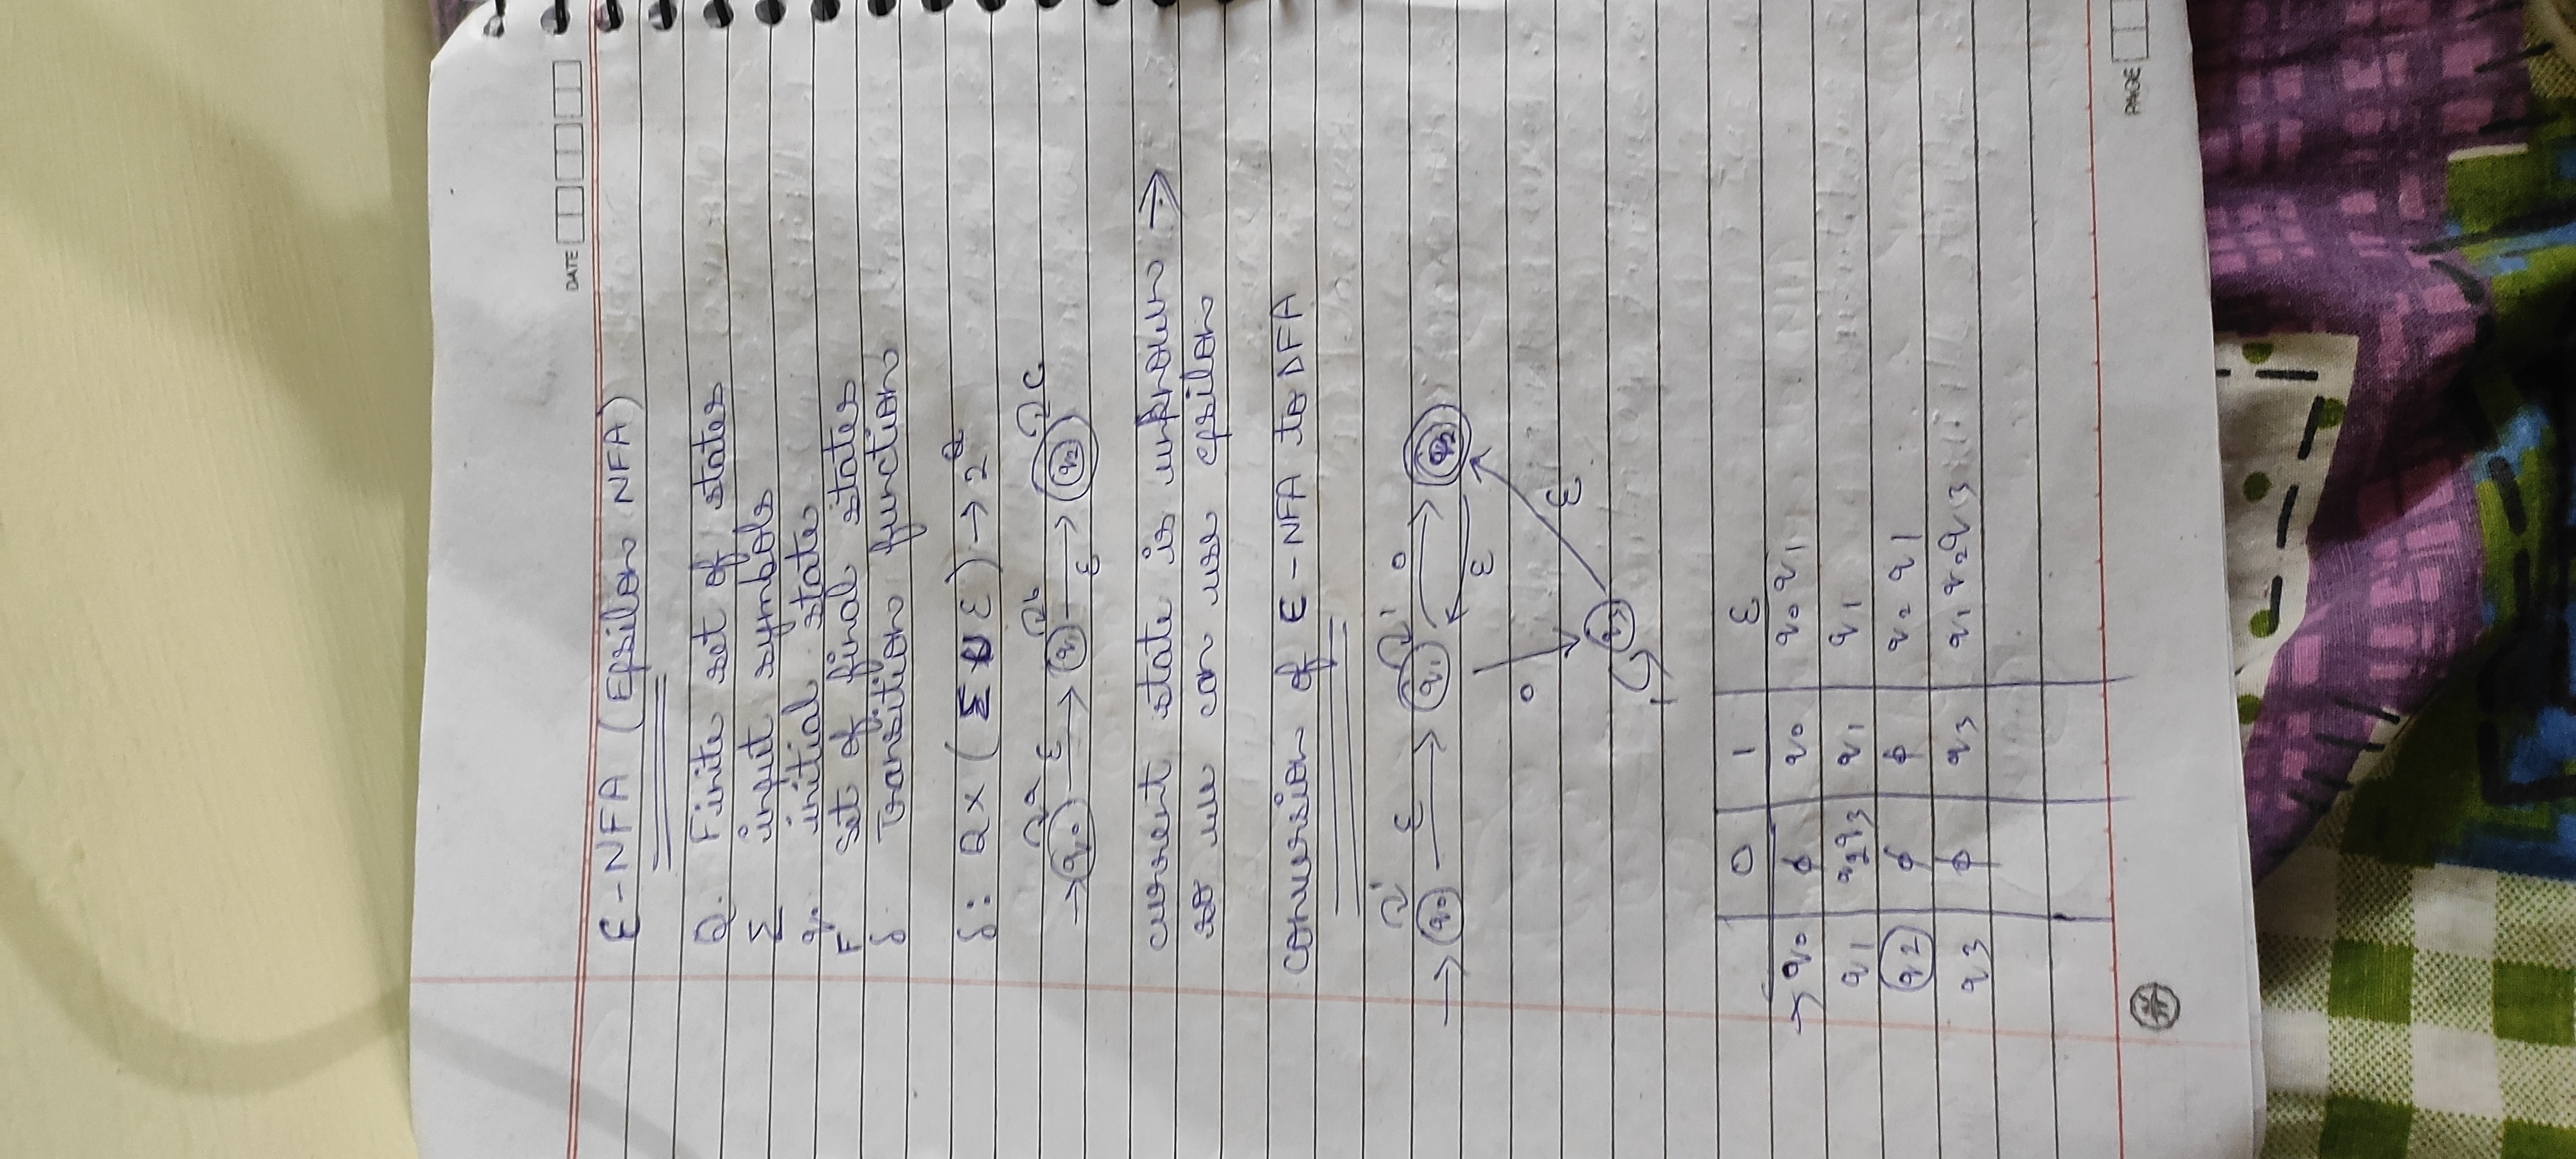 DATE
ε-NFA (Epsilon NFA)
Q. Finite set of states
Σ input symbols
q0 initial state
F set of final states
δ Transition function
δ: Q × (Σ ∪ ε) → 2^Q
a ε b c
→ q0 q1 ε q2
current state is unknown →
so we can use epsilon
conversion of ε-NFA to DFA
1 ε 1 0
→ q0 q1 q2
ε
0 ε
q3
1
0 1 ε
→ q0 ϕ q0 q0 q1
q1 q2q3 q1 q1
q2 ϕ ϕ q2 q1
q3 ϕ q3 q1 q2 q3
PAGE